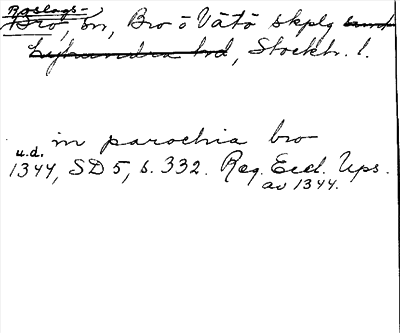 Roslags-
Bro, sn, Bro o Vätö skplg
Lyhundra hd, Stockh. l.
in parochia bro
u.d.
1344, SD 5, s. 332. Reg. Eccl. Ups.
av 1344.